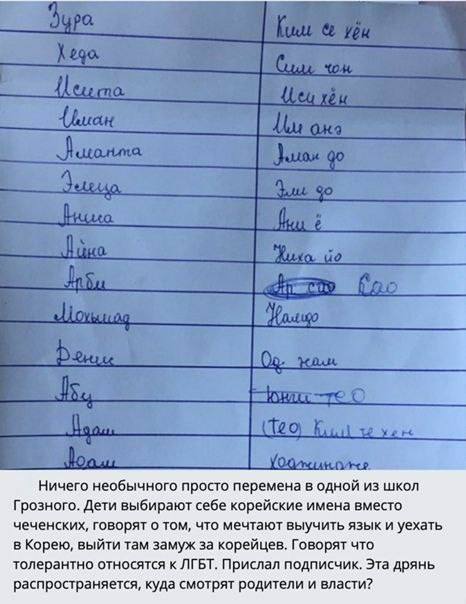 Зура Ким се хён
Хеда Сим чон
Исита Иси хён
Иман Им анэ
Аманта Аман до
Элеца Эли до
Аниса Ани ё
Айна Ниха йо
Арби Ар сао Сао
Мохьмад Намдо
Денис Од. нам
Абу Юнги тео
Адам (тео) Ким те хен
Адам
Ничего необычного просто перемена в одной из школ
Грозного. Дети выбирают себе корейские имена вместо
чеченских, говорят о том, что мечтают выучить язык и уехать
в Корею, выйти там замуж за корейцев. Говорят что
толерантно относятся к ЛГБТ. Прислал подписчик. Эта дрянь
распространяется, куда смотрят родители и власти?